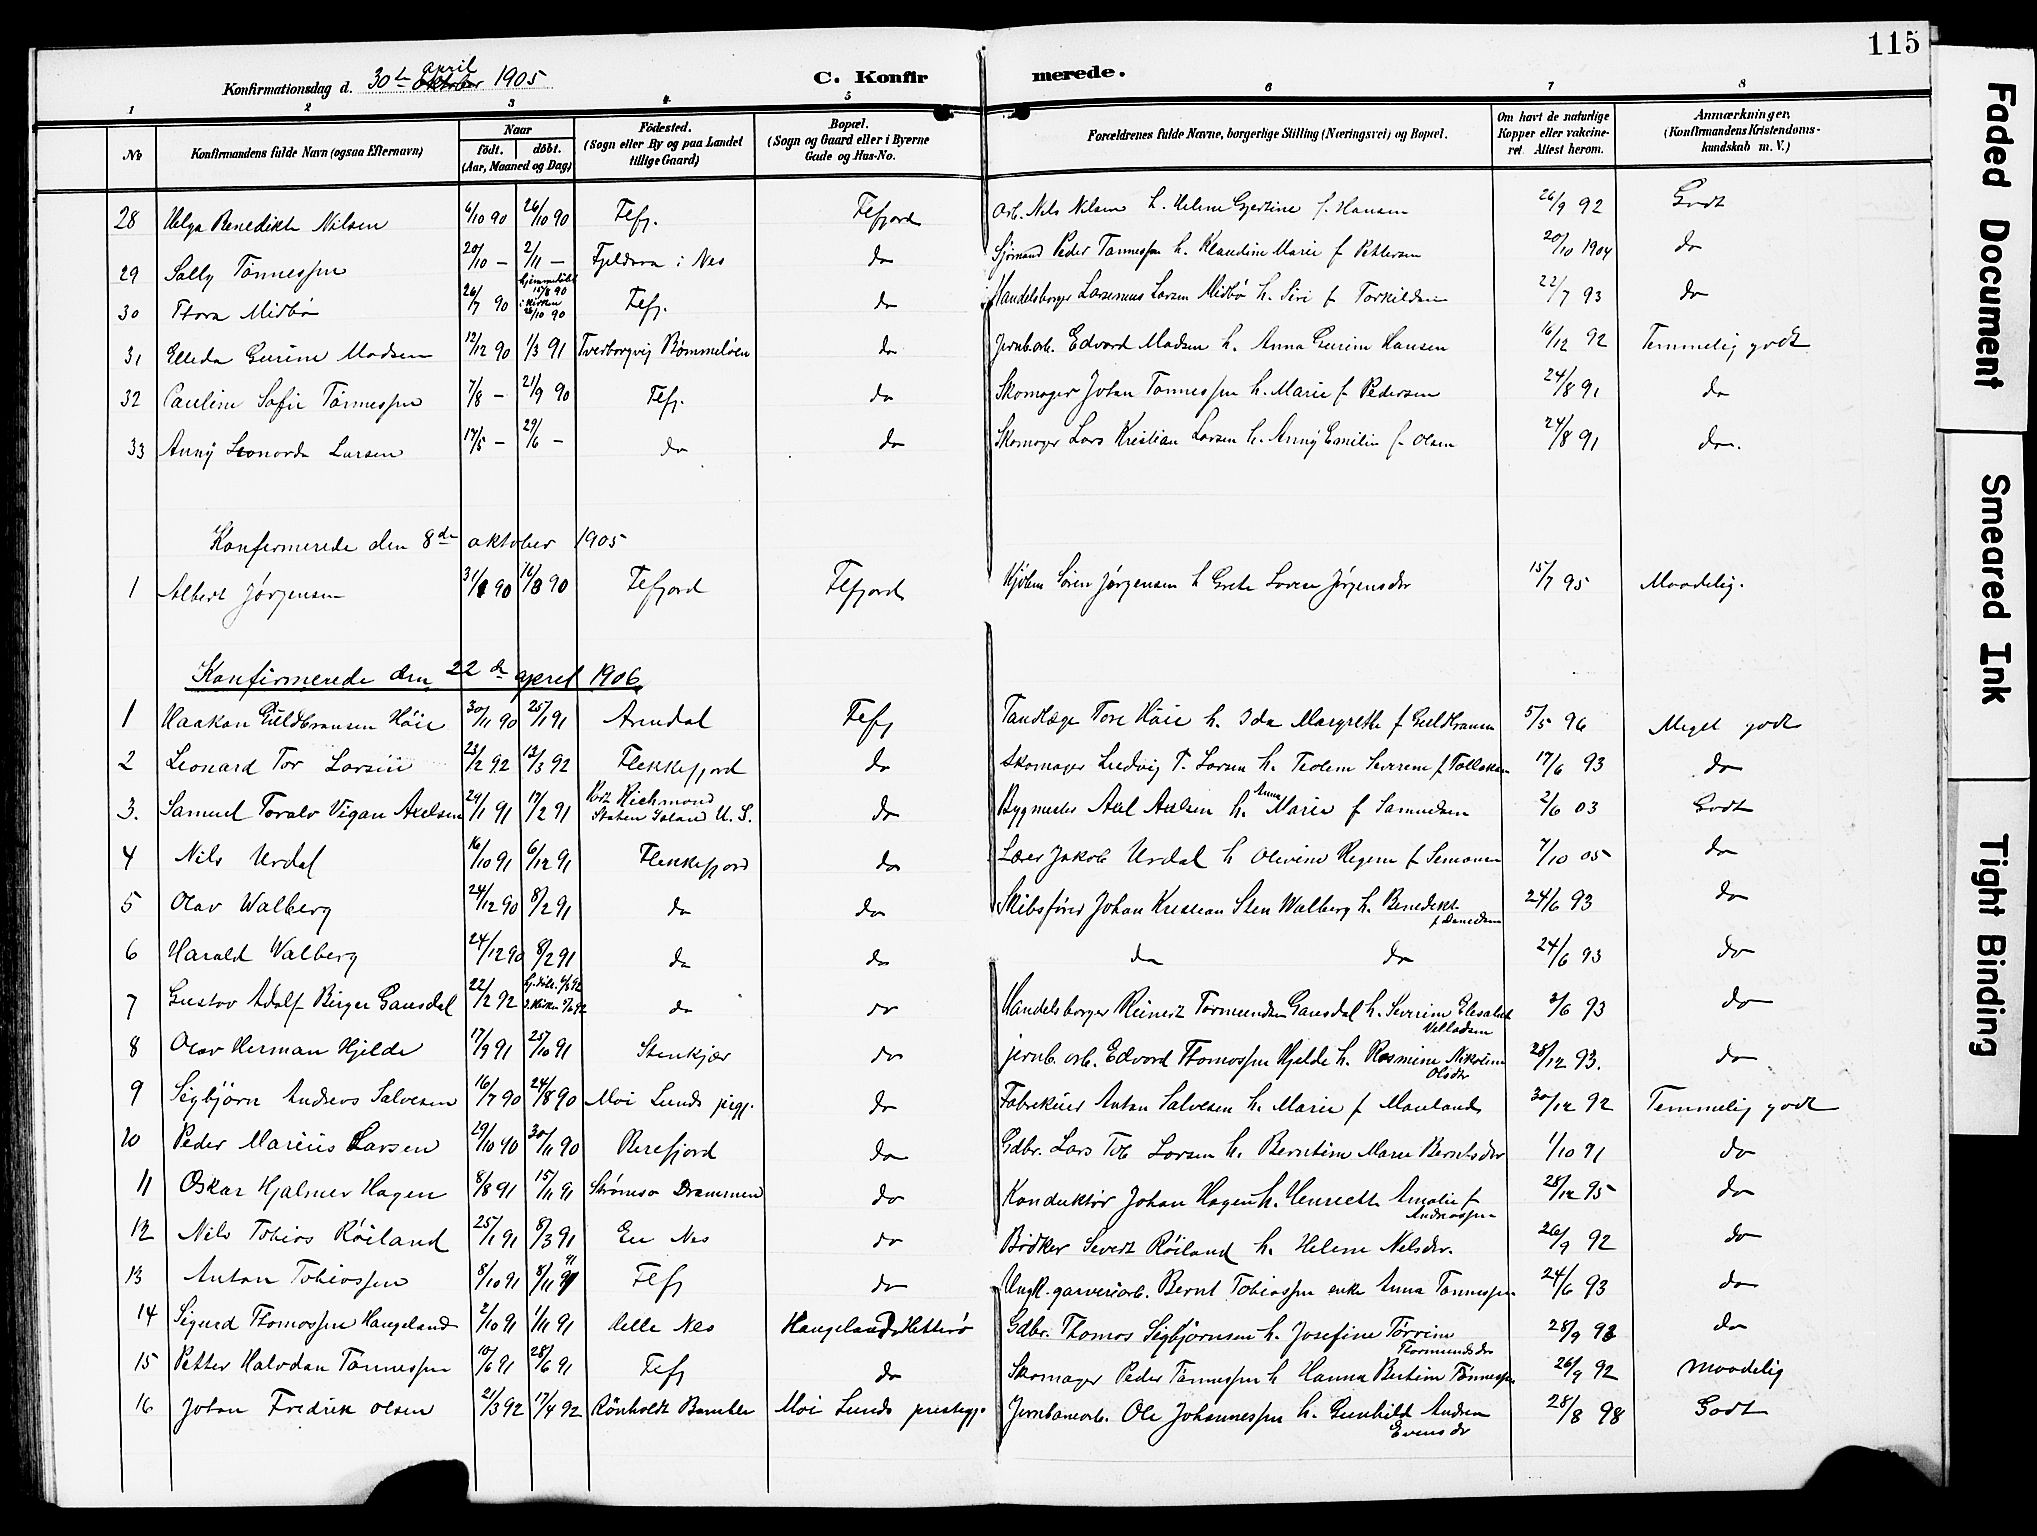 115
Konfirmationsdag d. 30te april oktober 1905
C. Konfirmerede.
1 2 3 4 5 6 7 8
No
Konfirmandens fulde Navn (ogsaa Efternavn)
Naar
født. døbt.
(Aar, Maaned og Dag)
Fødested.
(Sogn eller By og paa Landet
tillige Gaard)
Bopæl.
(Sogn og Gaard eller i Byerne
Gade og Hus-No.
Forældrenes fulde Navne, borgerlige Stilling (Næringsvei) og Bopæl.
Om havt de naturlige
Kopper eller vakcine-
ret. Attest herom.
Anmærkninger.
(Konfirmandens Kristendoms-
kundskab m. V.)
28 Helga Benedikte Nilsen 6/10 90 26/10 90 Flfj. Flfjord Arb. Nils Nilsen h. Helene Gjertine f. Hansen 26/9 92 Godt
29 Sally Tønnessen 20/10 – 2/11 – Fjeldsaa i Nes do Sjømand Peder Tønnessen h. Klaudine Marie f Pettersen 20/10 1904 do
30 Thora Midbø 26/7 90 hjemmedøbt 15/8 90 i kirken 26/10 90 Flfj. do Handelsborger Larsenius Larsen Midbø h. Siri f Torkildsen 22/7 93 do
31 Elleda Gurine Madsen 12/12 90 1/3 91 Tverborgvig Bømmeløen do Jernb.arb. Edvard Madsen h. Anna Gurine Hansen 16/12 92 Temmelig godt
32 Pauline Sofie Tønnessen 7/8 – 21/9 90 Flfj. do Skomager Johan Tønnessen h. Marie f Pedersen 24/8 91 do
33 Anny Leonarda Larsen 17/5 – 29/6 – do do Skomager Lars Kristian Larsen h. Anny Emilie f Olsen 24/8 91 do.
Konfirmerede den 8de oktober 1905
1 Albert Jørgensen 31/1 90 16/8 90 Flfjord Flfjord Søren Jørgensen h Grete Lovise Jørgensdtr 15/7 95 Maadelig.
Konfirmerede den 22de april 1906
1 Haakon Guldbransen Høie 30/11 90 25/1 91 Arendal Flfj Tandlæge Tore Høie h. Ida Margrethe f Guldbransen 5/5 96 Meget godt
2 Leonard Tor Larsen 23/2 92 13/3 92 Flekkefjord do Skomager Ludvig T. Larsen h. Teoline Severine f Tollaksen 17/6 93 do
3. Samuel Toralv Vigan Axelsen 24/1 91 17/2 91 Port Richmond Staten Island U. S. do Bygmester Axel Axelsen h. Anna Marie f Samuelsen 2/6 03 Godt
4 Nils Urdal 16/10 91 6/12 91 Flekkefjord do Lærer Jakob Urdal h Olivine Regine f Simonsen 7/10 05 do
5 Olav Walberg 24/12 90 8/2 91 do do Skibsfører Johan Kristian Sten Walberg h. Benedikte f Danielsen 24/6 93 do
6 Harald Walberg 24/12 90 8/2 91 do do do do 24/6 93 do
7 Gustav Adolf Birger Gausdal 22/2 92 do do Handelsborger Reinert Tormundsen Gausdal h. Severine Elisabeth Velladsen 2/6 93 do
8 Olav Herman Hjelde 17/9 91 25/10 91 Stenkjær do jernb. arb. Edvard Thomassen Hjelde h. Rasmine Nikoline Olsdtr 28/12 93. do
9 Sigbjørn Andreas Salvesen 16/7 90 24/8 90 Moi Lunds prgj. do Fabrikeier Anton Salvesen h. Marie f Maulands 30/12 92 Temmelig godt
10 Peder Marius Larsen 29/10 90 30/11 90 Berefjord do Gdbr. Lars Tob Larsen h. Berntine Marie Berntsdtr 1/10 91 do
11 Oskar Hjalmer Hagen 8/8 91 15/11 91 Strømsø Drammen do Konduktør Johan Hagen h. Henriette Amalie f Andreassen 28/12 95 do
12 Nils Tobias Røiland 25/1 91 8/3 91 Eie Nes do Bødker Severt Røiland h. Helene Nelsdtr. 26/9 92 do
13 Anton Tobiassen 8/10 91 8/11 91 Flfj do Ungk. garveriarb. Bernt Tobiassen enke Anna Tønnessen 24/6 93 do
14 Sigurd Thomassen Haugeland 2/10 91 1/11 91 Helle Nes Haugeland Hitterø Gdbr. Thomas Sigbjørnsen h. Josefine Tørrine Thormundsdtr 28/9 93 do
15 Petter Halvdan Tønnessen 10/6 91 28/6 91 Flfj do Skomager Peder Tønnessen h Hanna Bertine Tønnessen 26/9 92 Maadelig
16 Johan Fredrik Olsen 21/3 92 17/4 92 Rønholdt Bamble Moi Lunds prestegj. Jernbanearb. Ole Johannessen h. Gunhild Andrea Evensdtr 28/8 98 Godt
Faded Document
Smeared Ink
Tight Binding